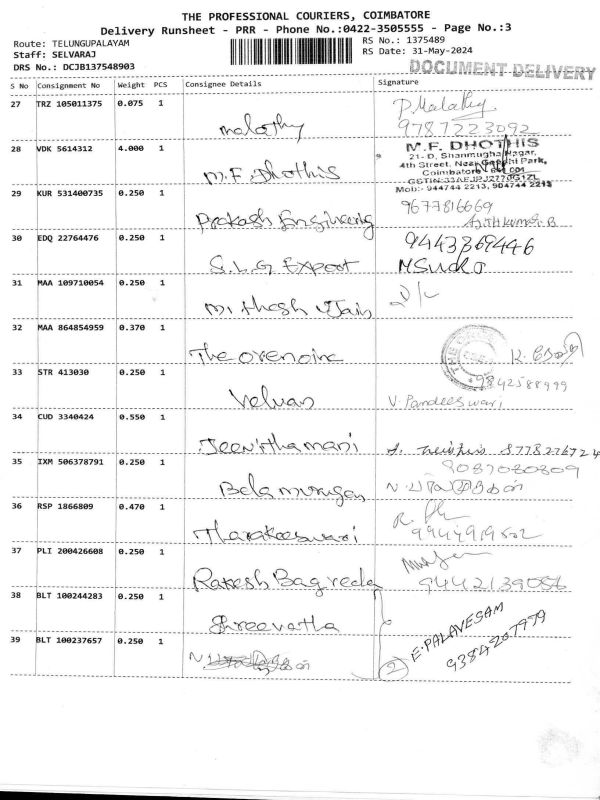 THE PROFESSIONAL COURIERS, COIMBATORE
Delivery Runsheet - PRR - Phone No.:0422-3505555 - Page No.:3
Route: TELUNGUPALAYAM
RS No.: 1375489
Staff: SELVARAJ
RS Date: 31-May-2024
DRS No.: DCJB137548903
DOCUMENT DELIVERY
S No Consignment No Weight PCS Consignee Details Signature
27 TRZ 105011375 0.075 1
malathy P. Malathy
9787223092
28 VDK 5614312 4.000 1
M.F. Dhothis
M.F. DHOTHIS
21-D, Shanmugha Nagar,
4th Street, Near Gandhi Park,
Coimbatore
Mob:- 944744 2213, 904744 2213
29 KUR 531400735 0.250 1
Prakash Engineering 9677816669
Ajithkumar.B
30 EDQ 22764476 0.250 1
S.L.G Export 9443869446
31 MAA 109710054 0.250 1
Mithesh Jain D/L
32 MAA 864854959 0.370 1
The
33 STR 413030 0.250 1
9842588999
Velvan V. Pandeeswari
34 CUD 3340424 0.550 1
Jeevithamani 8778276724
35 IXM 506378791 0.250 1
9087080809
Bala murugan
36 RSP 1866809 0.470 1
Tharakeeswari
37 PLI 200426608 0.250 1
Rakesh Bagrecha 9442139086
38 BLT 100244283 0.250 1
Shreevatha
39 BLT 100237657 0.250 1
2 E.PALAVESAM
9384207979